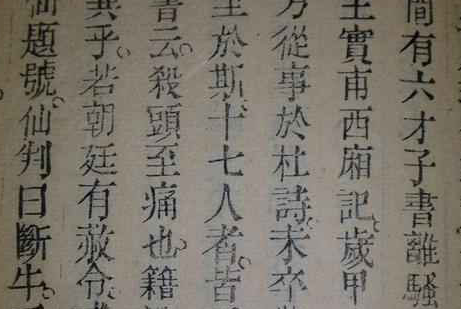 間有六才子書離騷
王實甫西廂記。歲甲
乃從事於杜詩。未卒
至於斯。十七人者。皆
書云。殺頭至痛也。籍
異乎。若朝廷有赦令。
仙題號。仙判曰斷牛。